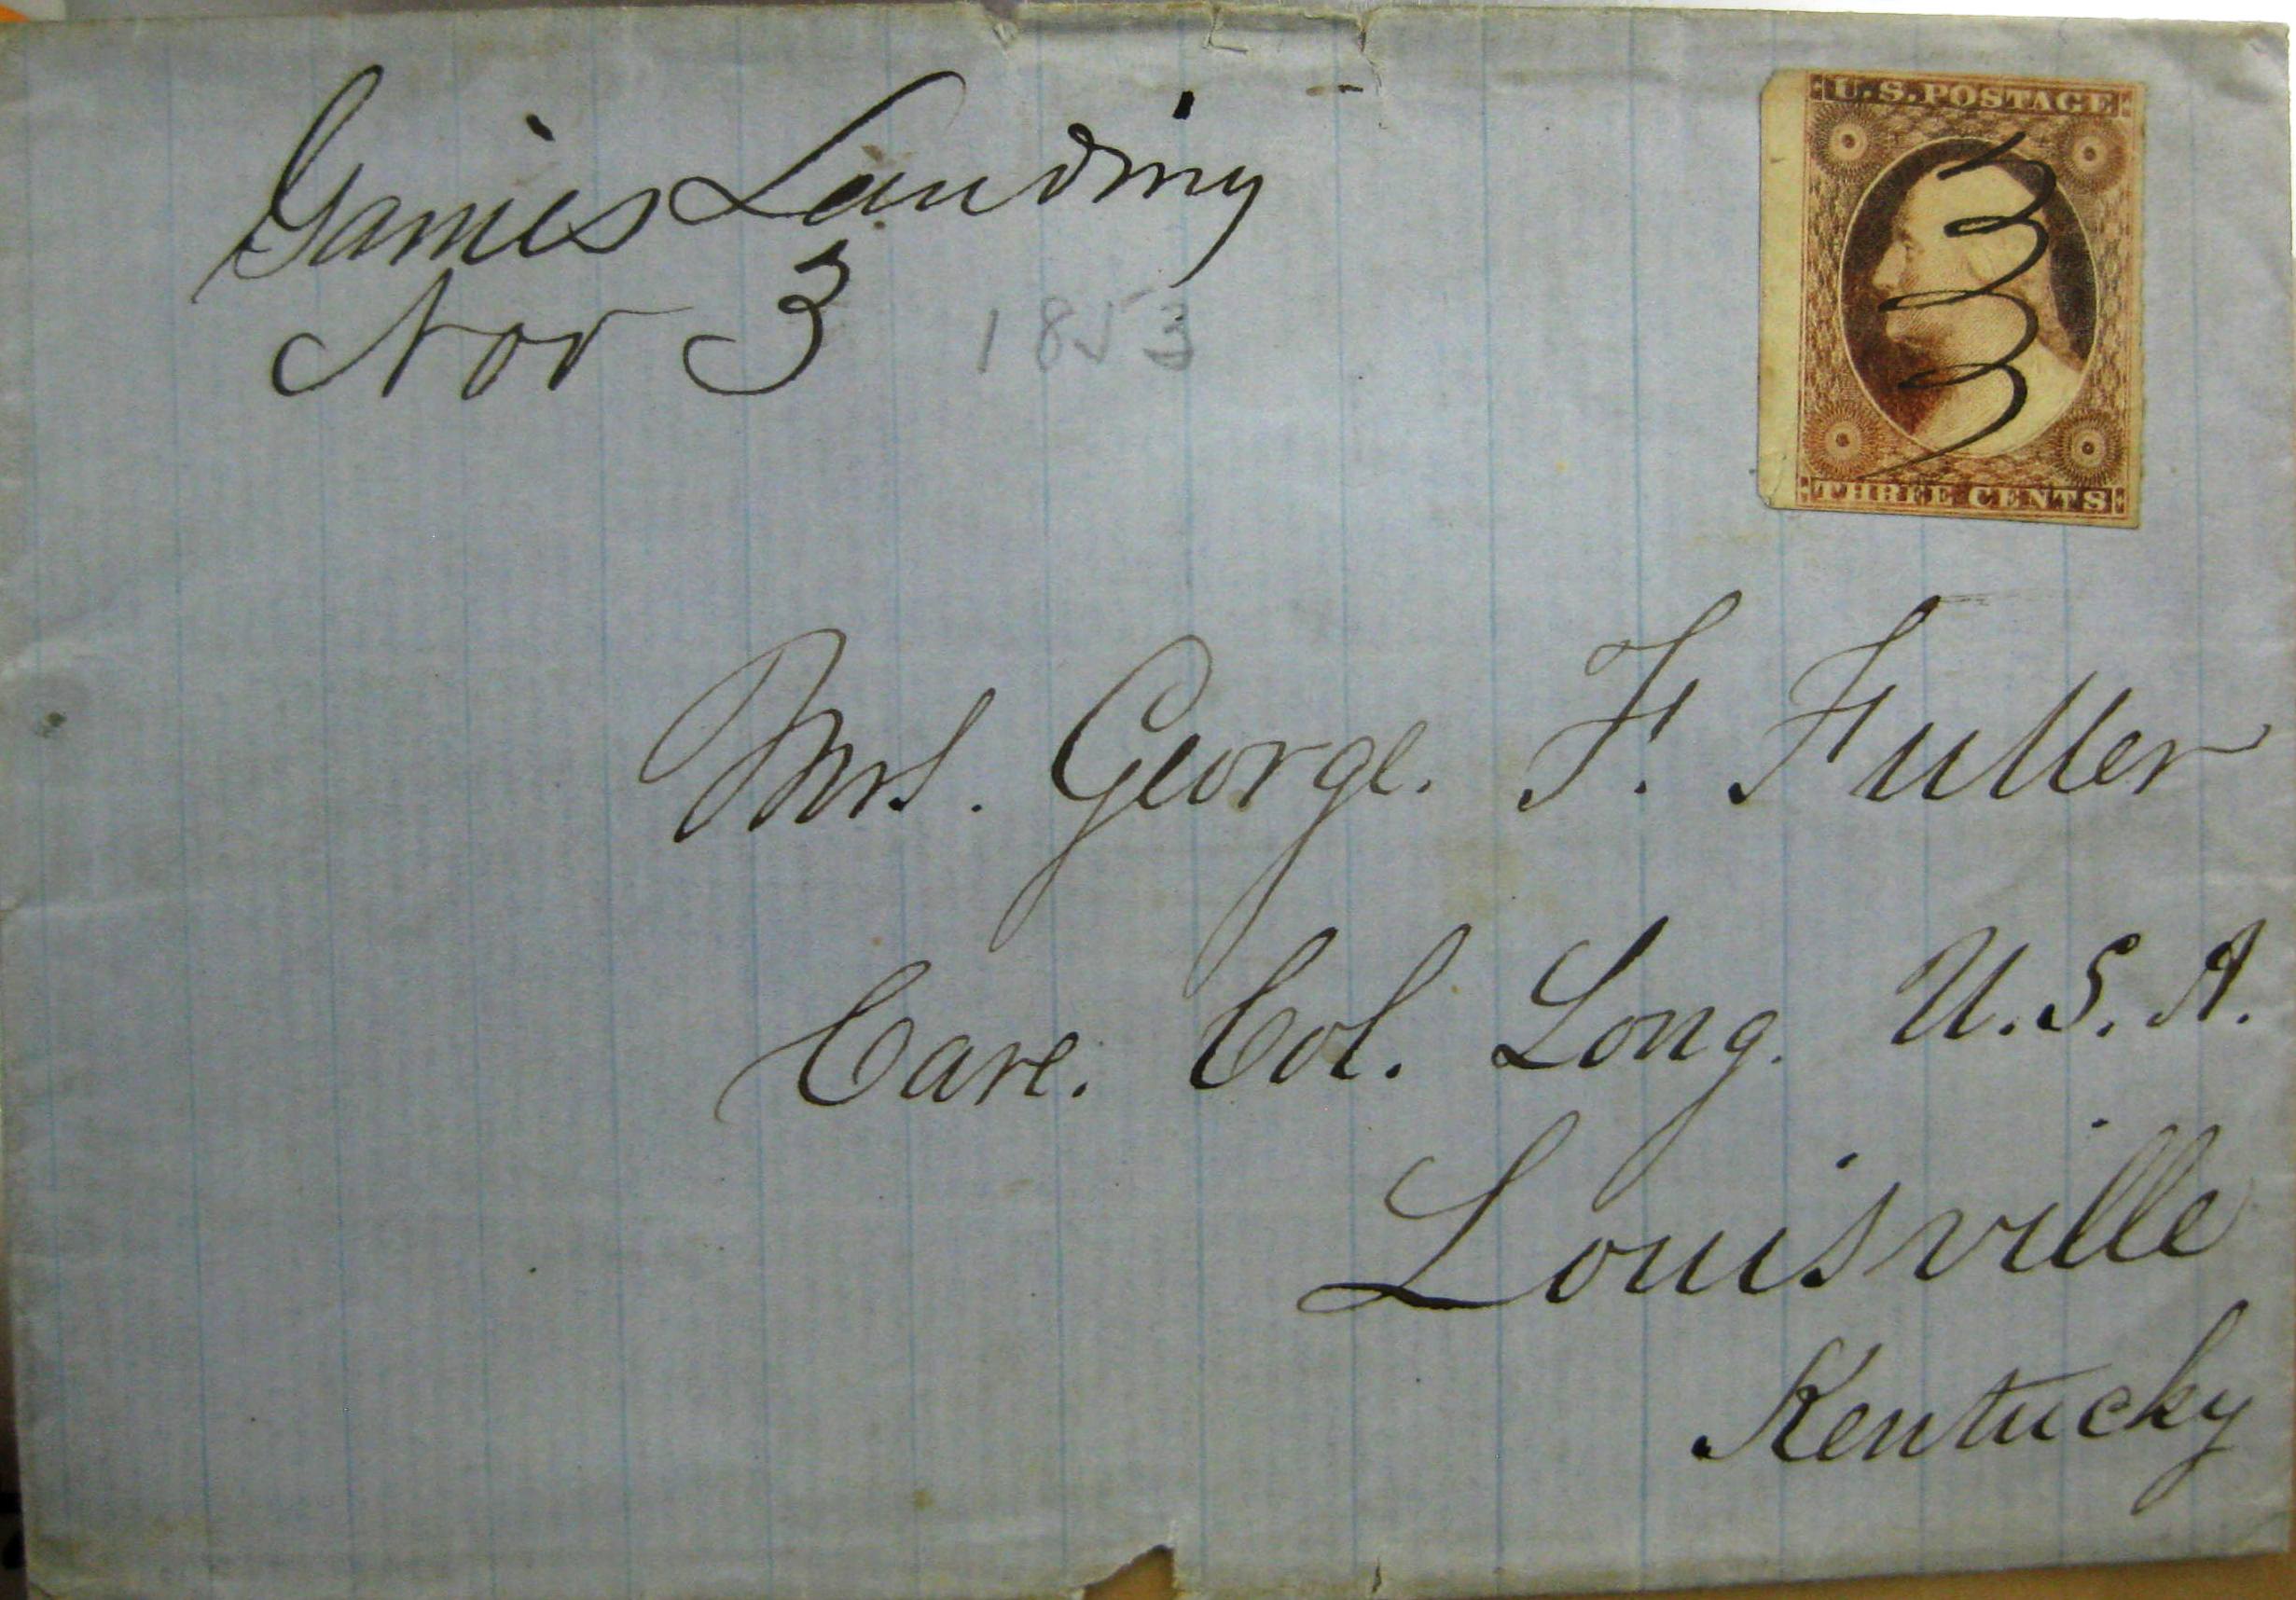 Gaines Landing
Nov 3 1853
U.S. POSTAGE
THREE CENTS
Mrs. George. F. Fuller
Care. Col. Long. U.S.A.
Louisville
Kentucky